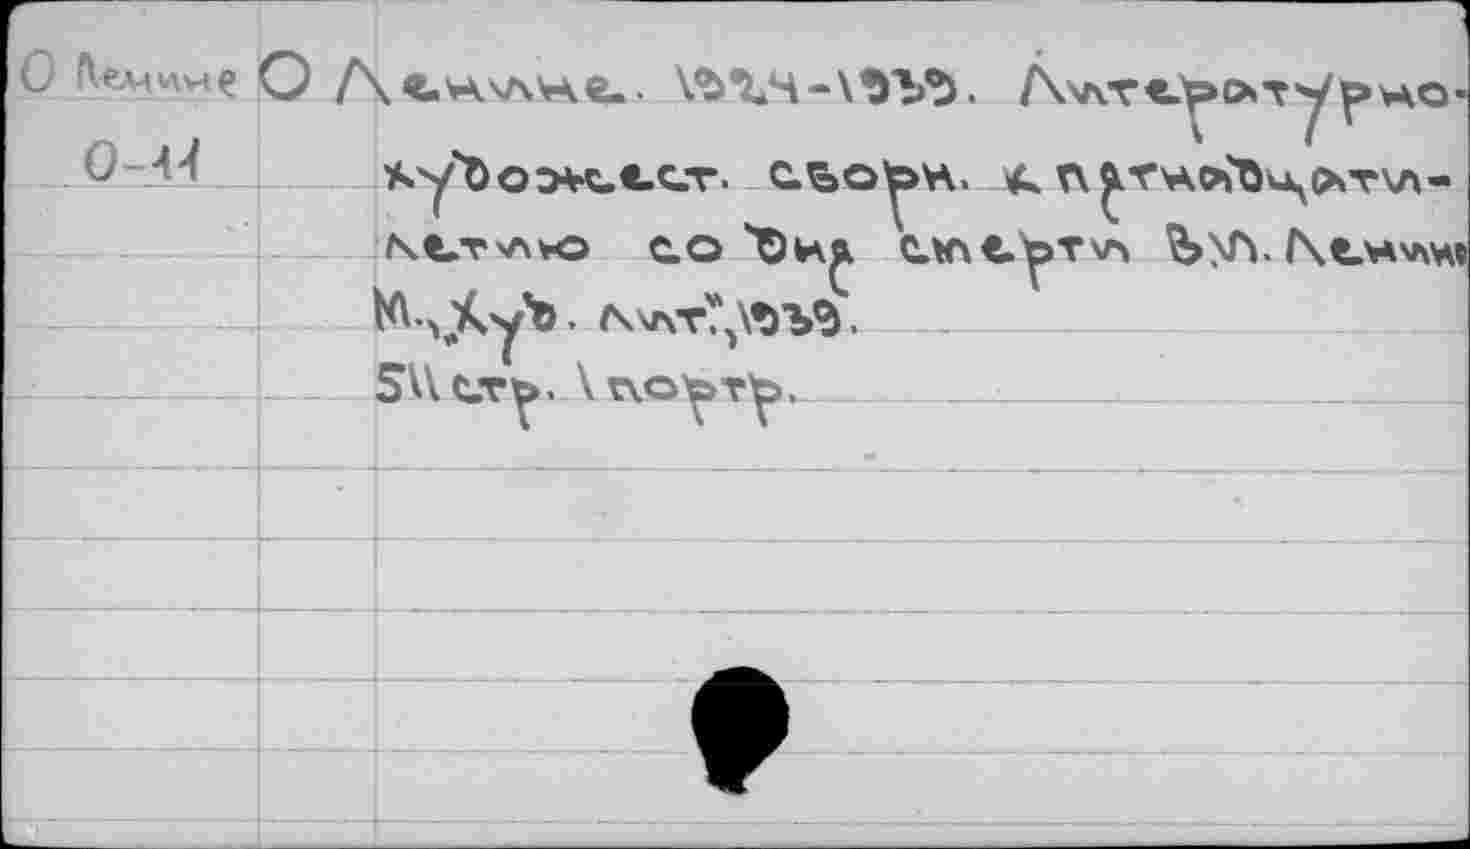 О Ленине О Ленине. 1924-1939. Литературно-
О-11 художест. сборн. к пятнадцати-
летию со дня смерти В.И. Ленине
М., "Худ. лит.", 1939.
511 стр. 1 портр.